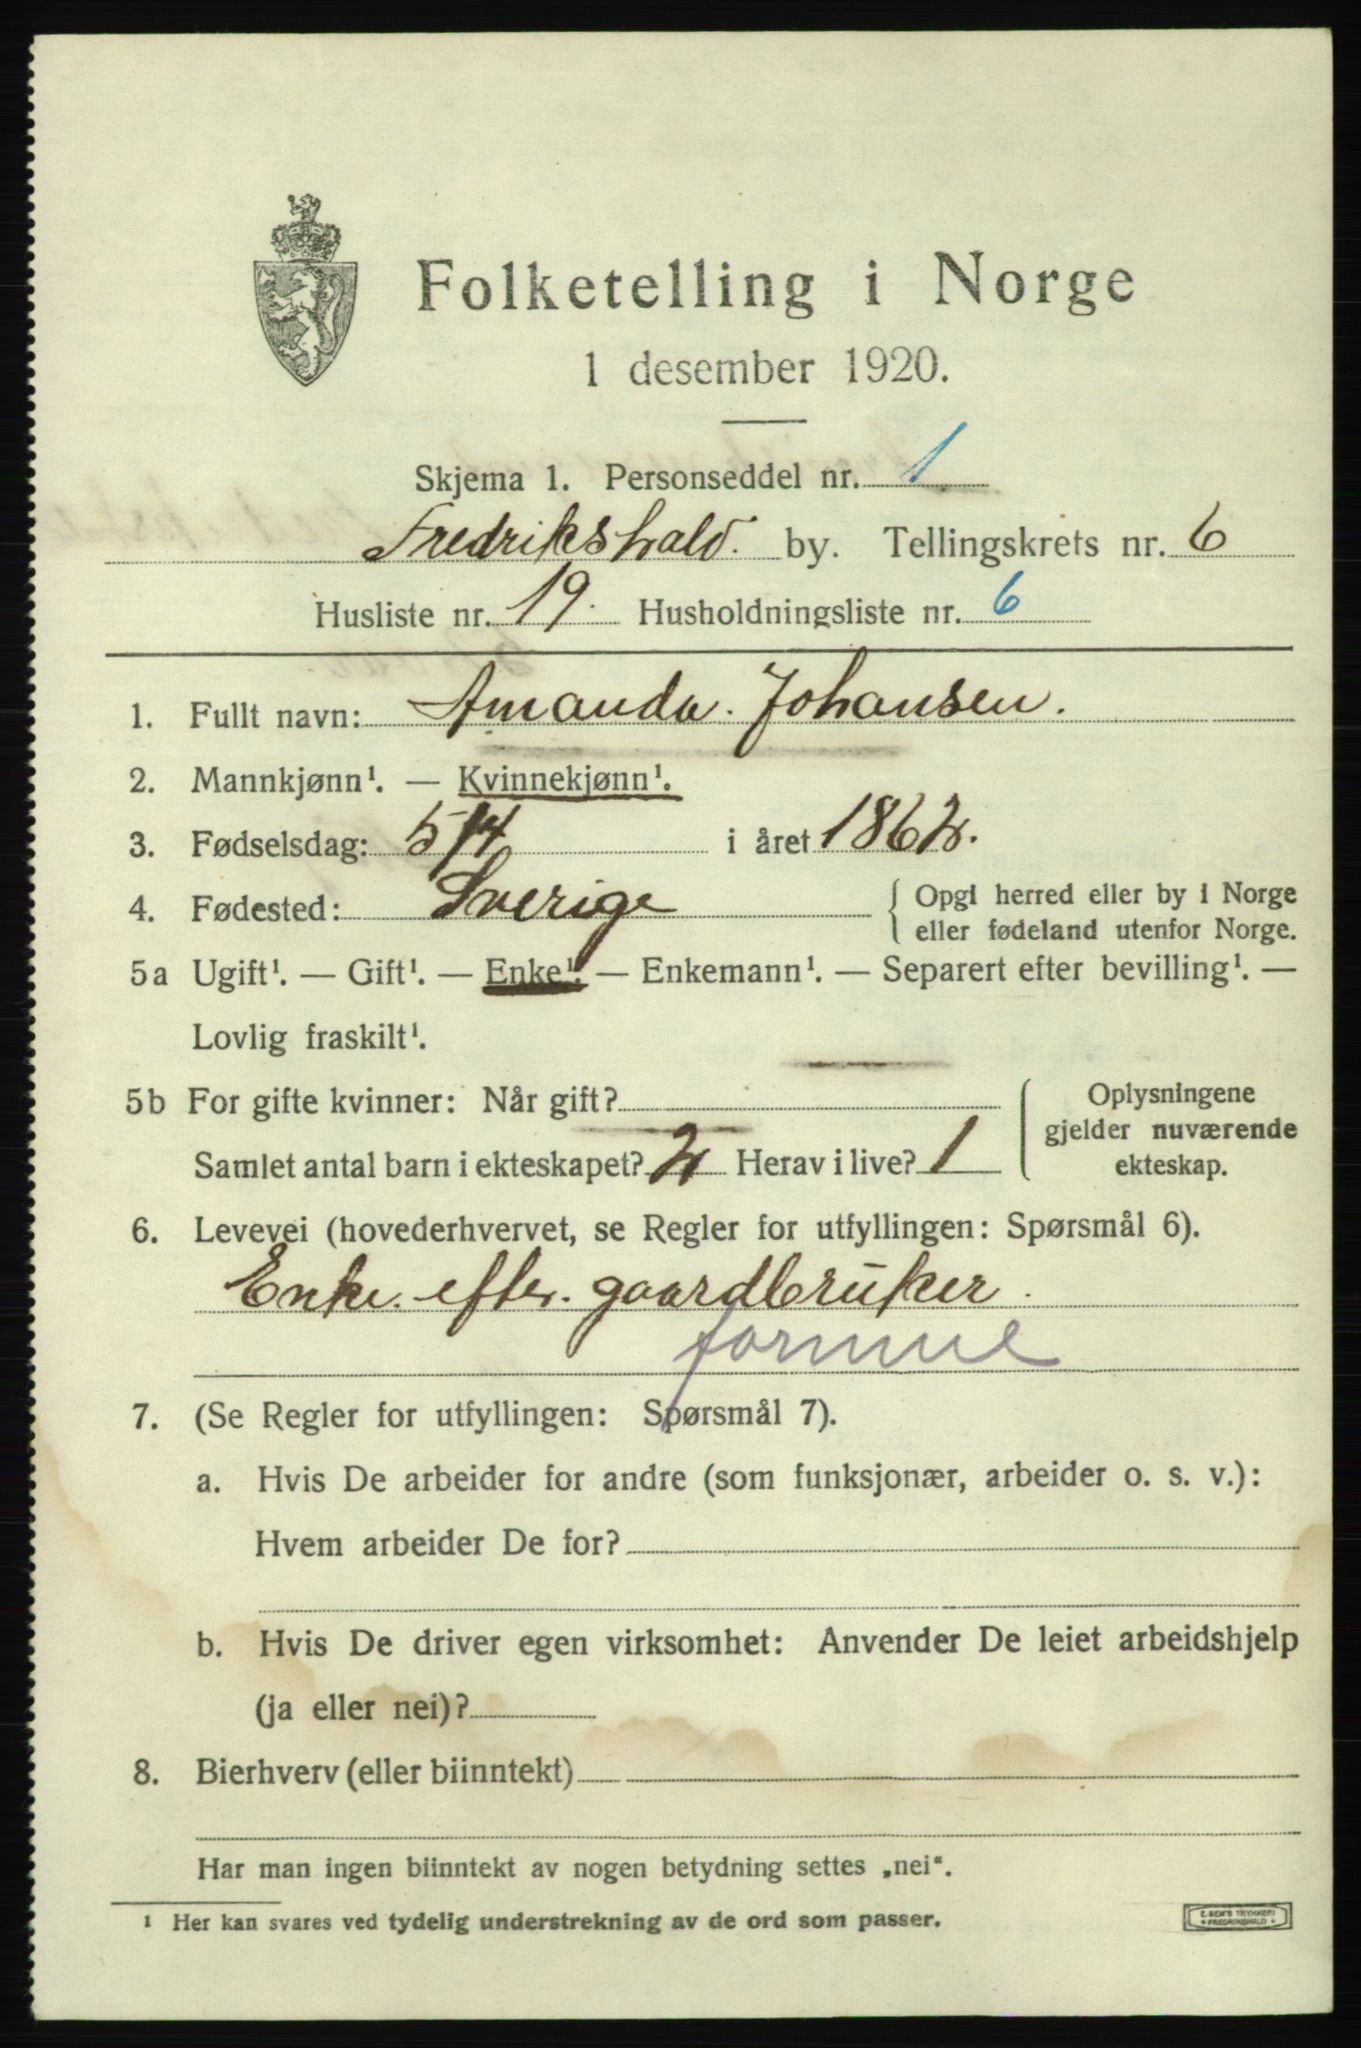 Folketelling i Norge
1 desember 1920.
Skjema 1. Personseddel nr. 1
Fredrikshald. by. Tellingskrets nr. 6
Husliste nr. 19. Husholdningsliste nr. 6
1. Fullt navn: Amanda. Johansen.
2. Mannkjønn¹. — Kvinnekjønn¹.
3. Fødselsdag: 5/4 i året 1862.
4. Fødested: Sverige { Opgi herred eller by i Norge
eller fødeland utenfor Norge.
5a Ugift¹. — Gift¹. — Enke¹. — Enkemann¹. — Separert efter bevilling¹. —
Lovlig fraskilt¹.
5b For gifte kvinner: Når gift? { Oplysningene
gjelder nuværende
Samlet antal barn i ekteskapet? 2 Herav i live? 1 ekteskap.
6. Levevei (hovederhvervet, se Regler for utfyllingen: Spørsmål 6).
Enke. efter. gaardbruker.
formue
7. (Se Regler for utfyllingen: Spørsmål 7).
a. Hvis De arbeider for andre (som funksjonær, arbeider o. s. v.):
Hvem arbeider De for?
b. Hvis De driver egen virksomhet: Anvender De leiet arbeidshjelp
(ja eller nei)?
8. Bierhverv (eller biinntekt)
Har man ingen biinntekt av nogen betydning settes „nei“.
¹ Her kan svares ved tydelig understrekning av de ord som passer.
E. SEM'S TRYKKERI
* FREDRIKSHALD *